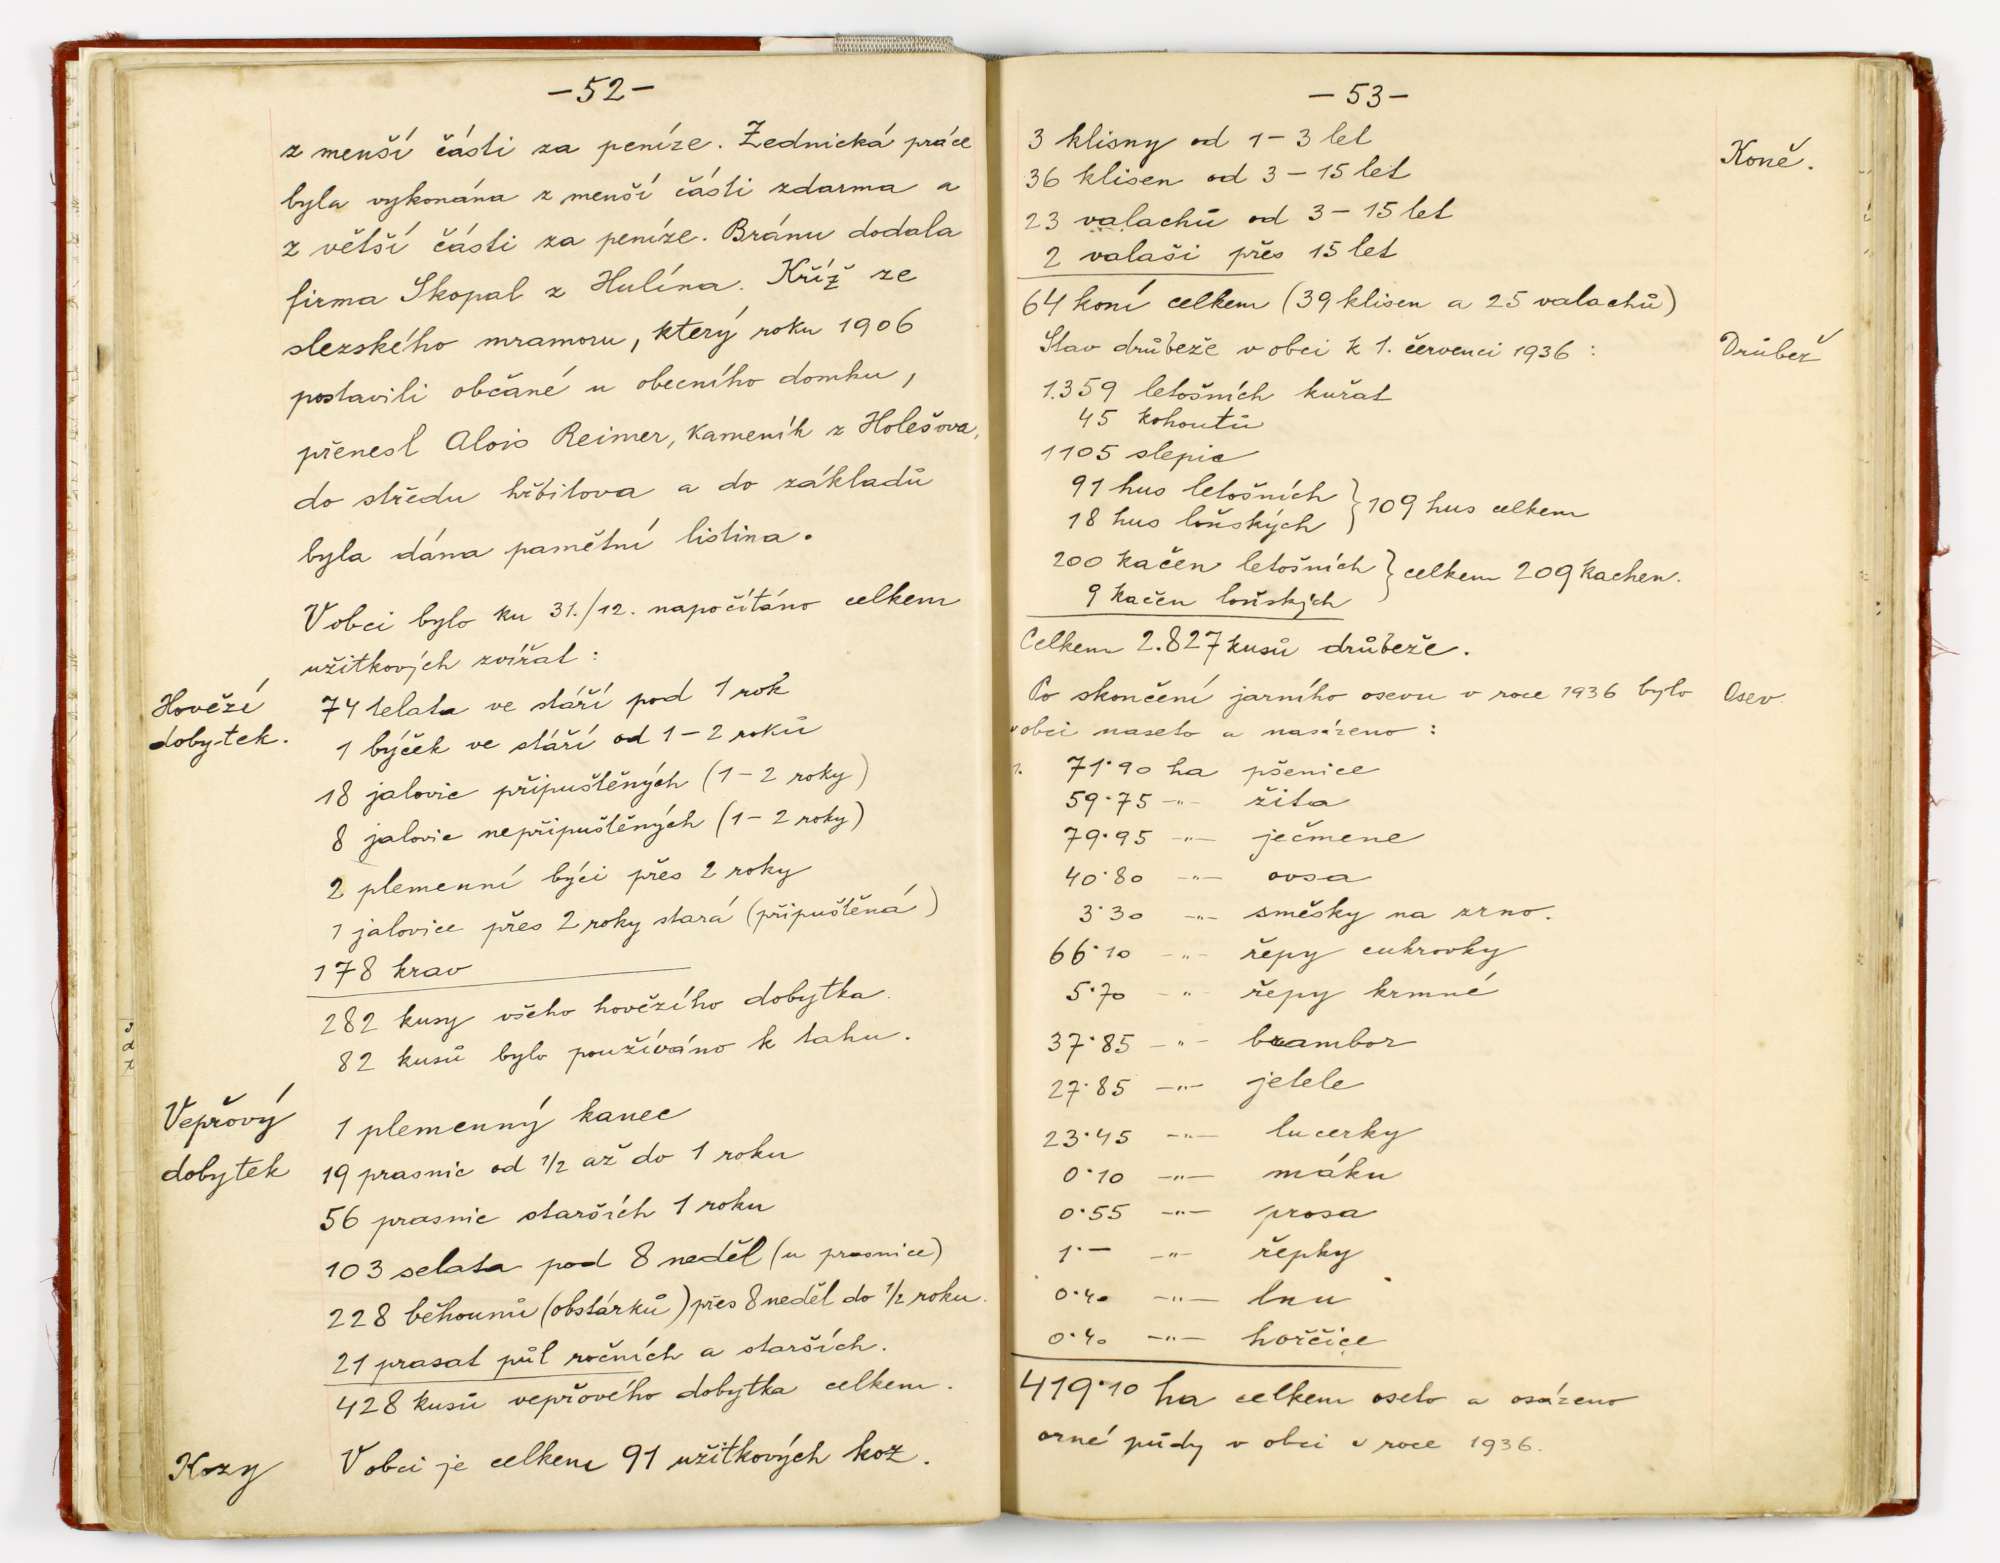 -52-
z menší části za peníze. Zednická práce
byla vykonána z menší části zdarma a
z větší části za peníze. Bránu dodala
firma Skopal z Hulína. Kříž ze
slezského mramoru, který roku 1906
postavili občané u obecního domku,
přenesl Alois Reimer, kameník z Holešova,
do středu hřbitova a do základů
byla dána pamětní listina.
V obci bylo ku 31./12. napočítáno celkem
užitkových zvířat:
Hovězí
dobytek.
74 telata ve stáří pod 1 rok
1 býček ve stáří od 1-2 roků
18 jalovic připuštěných (1-2 roky)
8 jalovic nepřipuštěných (1-2 roky)
2 plemenní býci přes 2 roky
1 jalovice přes 2 roky stará (připuštěná)
178 krav
282 kusy všeho hovězího dobytka.
82 kusů bylo používáno k tahu.
Vepřový
dobytek
1 plemenný kanec
19 prasnic od 1/2 až do 1 roku
56 prasnic starších 1 roku
103 selata pod 8 neděl (u prasnice)
228 běhounů (obstárků) přes 8 neděl do 1/2 roku.
21 prasat půl ročních a starších.
428 kusů vepřového dobytka celkem.
Kozy
V obci je celkem 91 užitkových koz.
-53-
Koně.
3 klisny od 1-3 let
36 klisen od 3-15 let
23 valachů od 3-15 let
2 valaši přes 15 let
64 koní celkem (39 klisen a 25 valachů)
Stav drůbeže v obci k 1. červenci 1936:
Drůbež
1.359 letošních kuřat
45 kohoutů
1105 slepic
91 hus letošních
18 hus loňských } 109 hus celkem
200 kačen letošních
9 kačen loňských } celkem 209 kachen.
Celkem 2.827 kusů drůbeže.
Po skončení jarního osevu v roce 1936 bylo
Osev
v obci naseto a nasázeno:
71·90 ha pšenice
59·75 -"- žita
79·95 -"- ječmene
40·80 -"- ovsa
3·30 -"- směsky na zrno.
66·10 -"- řepy cukrovky
5·70 -"- řepy krmné
37·85 -"- brambor
27·85 -"- jetele
23·45 -"- lucerky
0·10 -"- máku
0·55 -"- prosa
1·- -"- řepky
0·40 -"- lnu
0·40 -"- hořčice
419·10 ha celkem oseto a osázeno
orné půdy v obci v roce 1936.